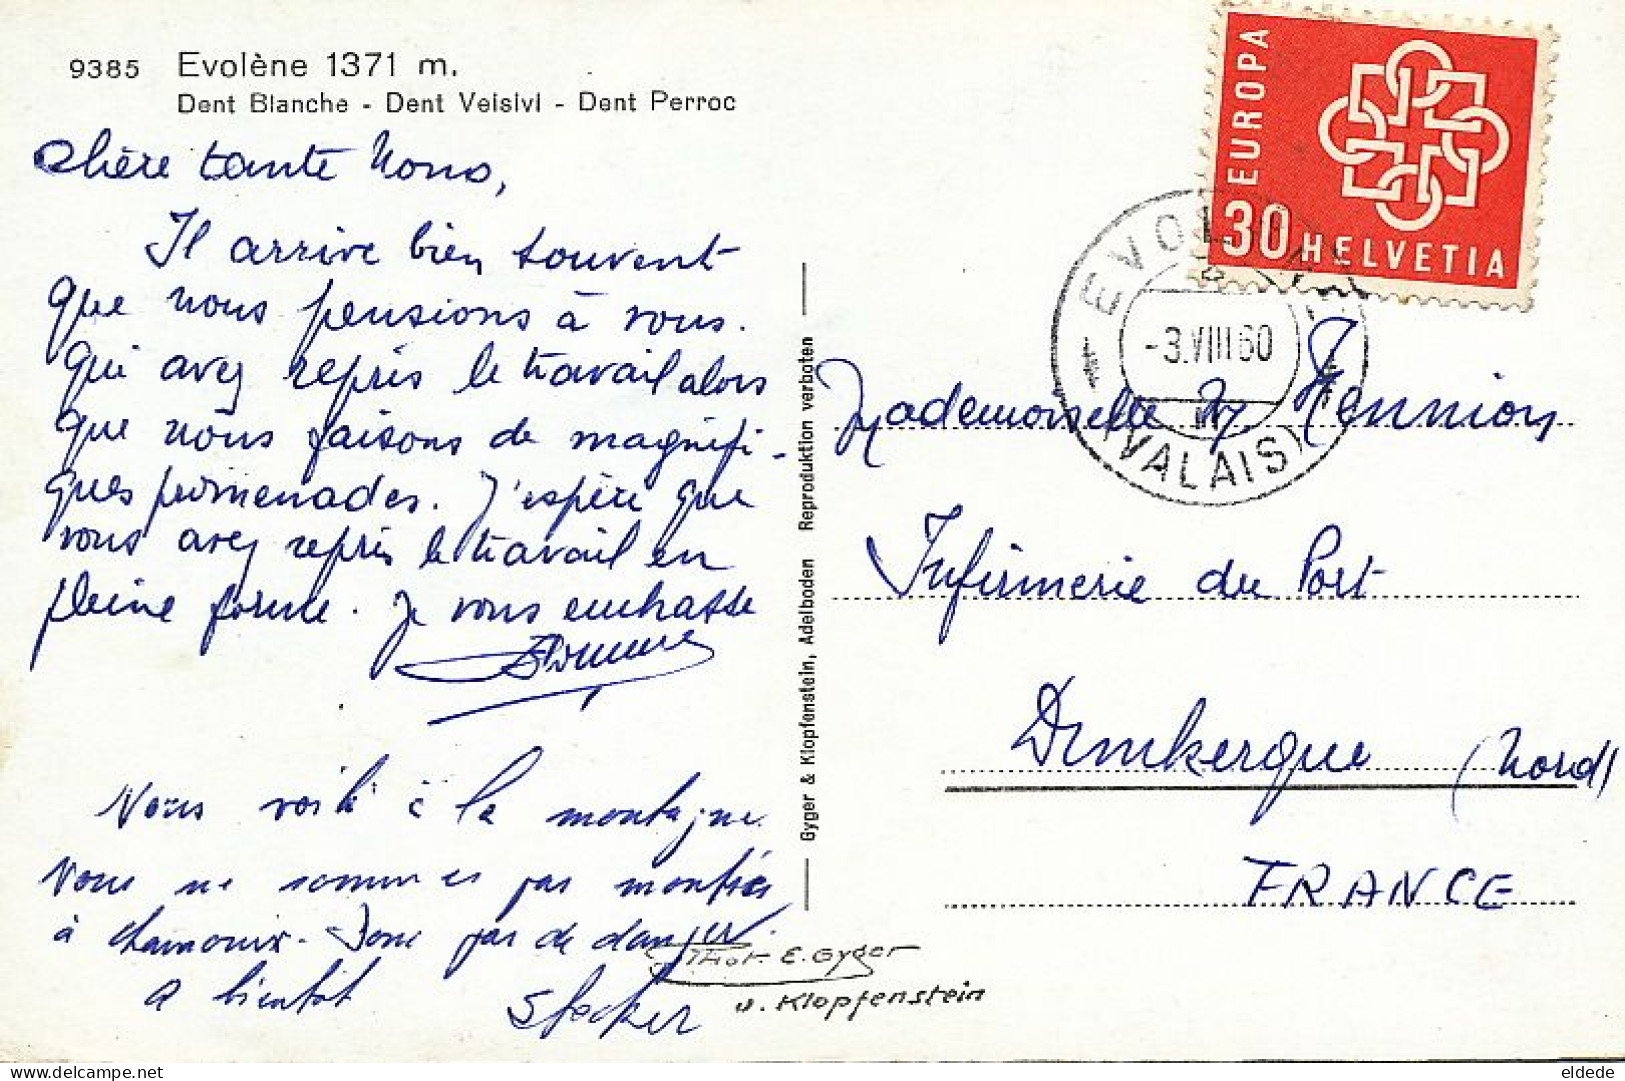 9385 Evolène 1371 m.
Dent Blanche - Dent Veisivi - Dent Perroc
Chère tante Nono,
Il arrive bien souvent
que nous pensions à vous.
qui avez repris le travail alors
que nous faisons de magnifi-
ques promenades. J'espère que
vous avez repris le travail en
pleine forme. Je vous embrasse
Nous voilà à la montagne
Nous ne sommes pas montés
à chamonix. Donc pas de danger.
A bientôt
EUROPA
30 HELVETIA
EVOLÈNE
-3.VIII 60
(VALAIS)
Mademoiselle Hennion
Infirmerie du Port
Dunkerque (Nord)
FRANCE
Gyger & Klopfenstein, Adelboden Reproduktion verboten
Phot. E. Gyger
u. Klopfenstein
eldede